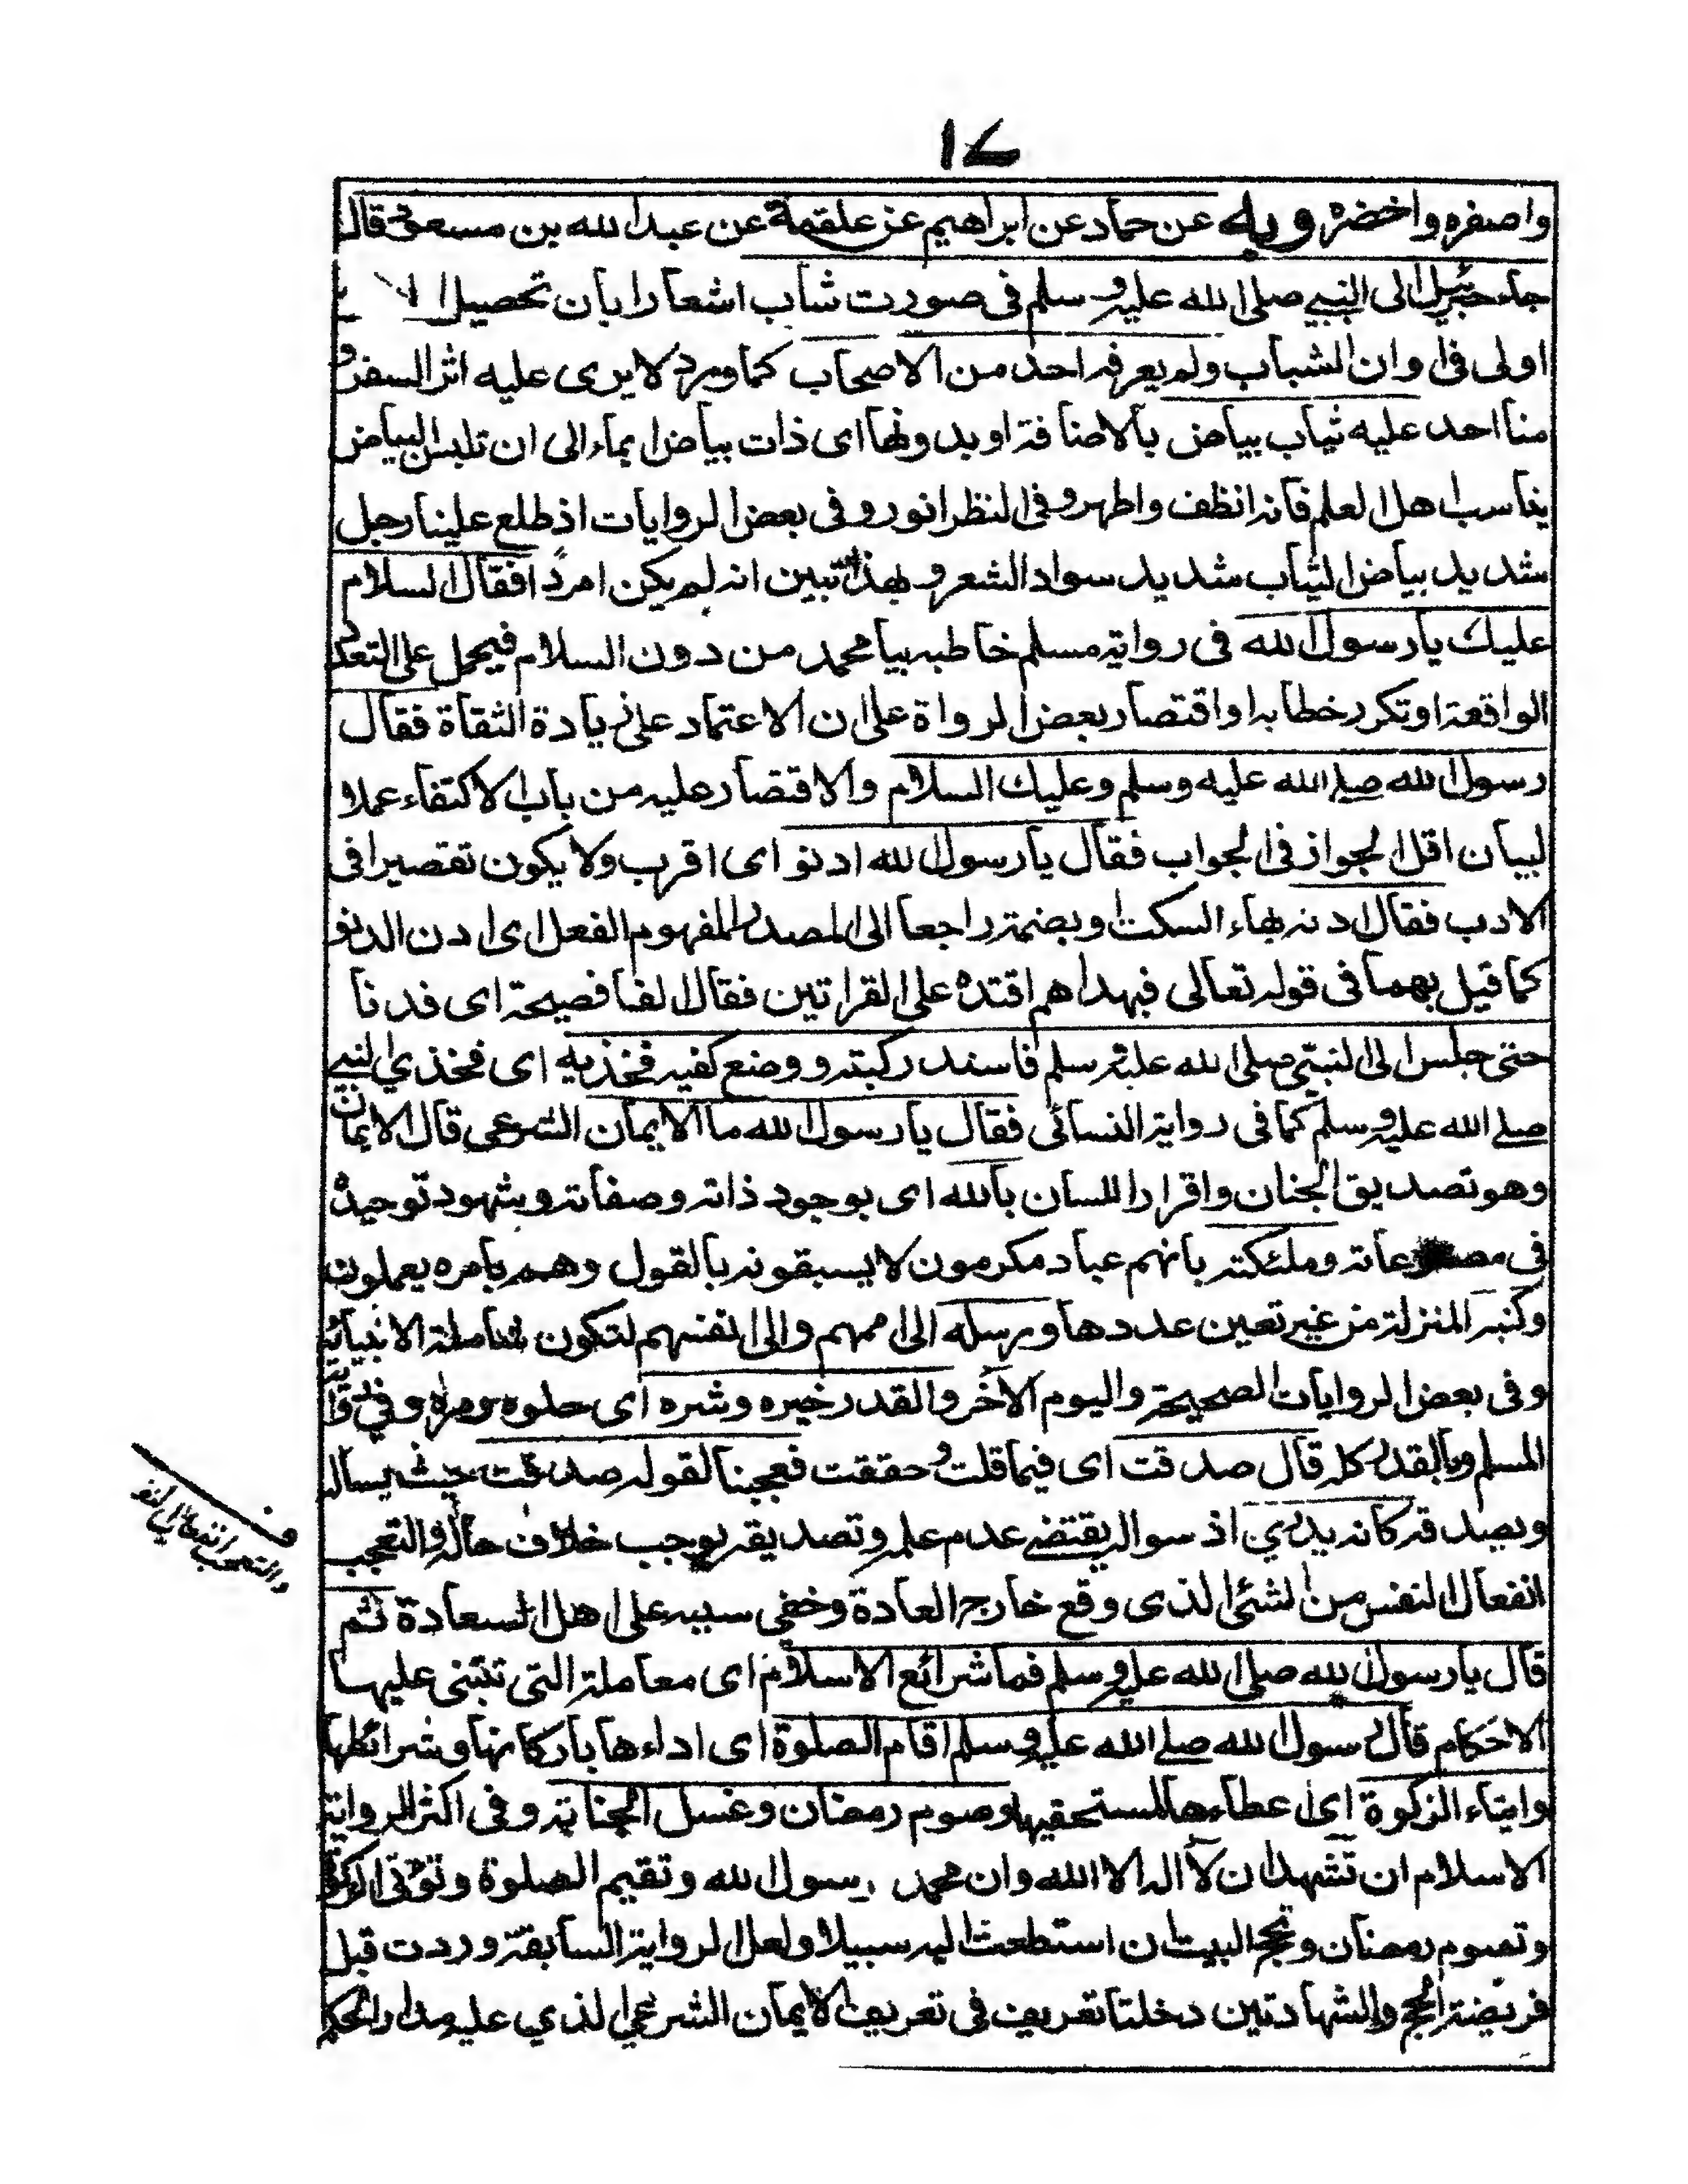 ١٧
واصفره واخضره وبه عن حماد عن ابراهيم عن علقمة عن عبدالله بن مسعود قال
جاء جبرئيل الى النبى صلى الله عليه وسلم فى صورت شاب اشعارا بان تحصيل
اولى فى اوان الشباب ولم يعرفه احد من الاصحاب كما ورد لا يرى عليه اثر السفر و
منا احد عليه ثياب بياض بالاضافة او بدونها اى ذات بياض ايماء الى ان تلبس البياض
يناسب اهل العلم فانه انظف واطهر وفى النظر انور وفى بعض الروايات اذ طلع علينا رجل
شديد بياض الثياب شديد سواد الشعر وبهذا تبين انه لم يكن امردا فقال السلام
عليك يا رسول الله فى رواية مسلم خاطبه بيا محمد من دون السلام فيحمل على التعدد
الواقعة او تكرر خطابه او اقتصار بعض الرواة على ان الاعتماد على زيادة الثقاة فقال
رسول الله صلى الله عليه وسلم وعليك السلام والاقتصار عليه من باب الاكتفاء عملا
لبيان اقل الجواز فى الجواب فقال يا رسول الله ادنو اى اقرب ولا يكون تقصيرا فى
الادب فقال ادنه بهاء السكت او بضمة راجعا الى المصدر المفهوم الفعل اى ادن الدنو
كما قيل بهما فى قوله تعالى فبهداهم اقتده على القراتين فقال الفا فصيحة اى فدنا
حتى جلس الى النبى صلى الله عليه وسلم فاسند ركبته ووضع كفيه فخذيه اى فخذي النبى
صلى الله عليه وسلم كما فى رواية النسائى فقال يا رسول الله ما الايمان الشرعى قال الايمان
وهو تصديق الجنان واقرار اللسان بالله اى بوجود ذاته وصفاته وبشهود توحيده
فى مصنوعاته وملئكته بانهم عباد مكرمون لا يسبقونه بالقول وهم بامره يعملون
وكتبه المنزلة من غير تعين عددها ورسله الى اممهم والى انفسهم لتكون شاملة الانبيائه
وفى بعض الروايات الصحيحة واليوم الآخر والقدر خيره وشره اى حلوه ومره وفي رواية
المسلم وبالقدر كله قال صدقت اى فيما قلت وحققت فعجبنا لقوله صدقت حيث يساله
ويصدقه كانه يدري اذ سواله يقتضى عدم علمه وتصديقه يوجب خلاف حاله والتعجب
انفعال النفس من الشئ الذى وقع خارج العادة وخفي سببه على اهل السعادة ثم
قال يا رسول الله صلى الله عليه وسلم فما شرائع الاسلام اى معاملة التى تبتنى عليها
الاحكام قال رسول الله صلى الله عليه وسلم اقام الصلوة اى اداءها باركانها وشرائطها
وايتاء الزكوة اى اعطاءها لمستحقيها وصوم رمضان وغسل الجنابة وفى اكثر الرواية
الاسلام ان تشهد ان لا اله الا الله وان محمد رسول الله وتقيم الصلوة وتؤتى الزكوة
وتصوم رمضان وتحج البيت ان استطعت اليه سبيلا ولعل الرواية السابقة وردت قبل
فريضة الحج والشهادتين دخلتا تعريف فى تعريف الايمان الشرعى الذي عليه مدار الحكم
والتعجب انفعال النف